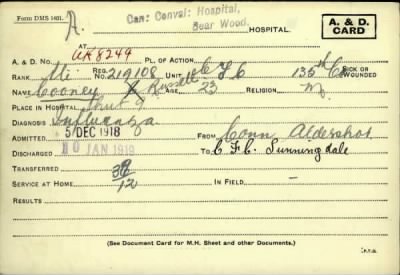 Form DMS 1401.
A.
Can: Conval: Hospital,
Bear Wood.
HOSPITAL.
A. & D.
CARD
AT
A. & D. NO. UK8244 PL. OF ACTION
RANK REG. NO. 219108 UNIT C F C 135th C SICK OR WOUNDED
NAME Cooney Russell AGE 23 RELIGION M
PLACE IN HOSPITAL Hut
DIAGNOSIS Influenza
ADMITTED 5/DEC 1918 FROM Conn Aldershot
DISCHARGED 10 JAN 1919 TO C.F.C. Sunningdale
TRANSFERRED
SERVICE AT HOME 12 IN FIELD —
RESULTS
(See Document Card for M.H. Sheet and other Documents.)